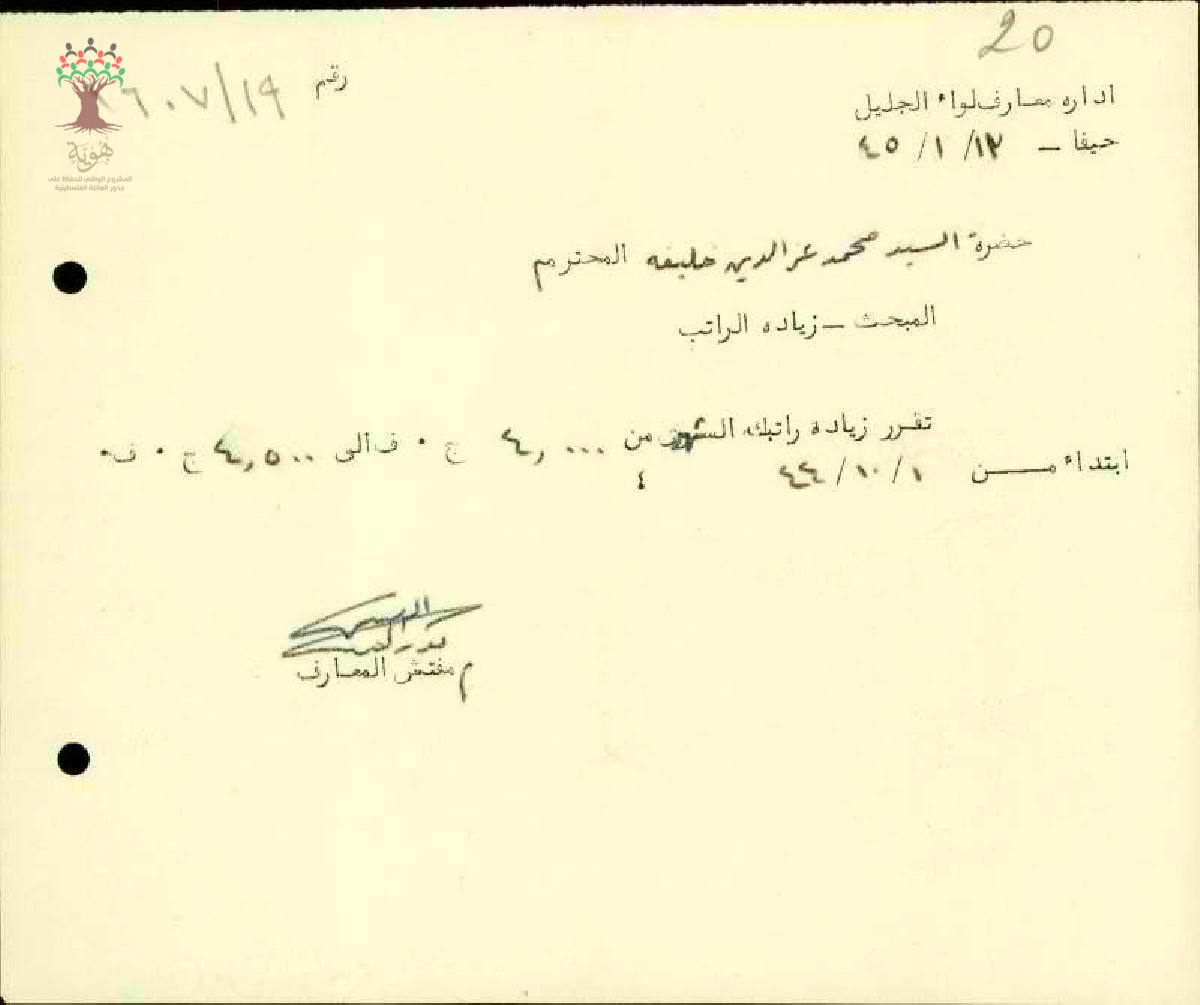 20
رقم ١٩/٦٠٧
اداره معارف لواء الجليل
حيفا – ١٢/ ١/ ٤٥
هُوِيَّة
المشروع الوطني للحفاظ على
جذور العائلة الفلسطينية
حضرة السيد محمد عز الدين خليفه المحترم
المبحث – زياده الراتب
تقرر زياده راتبك الشهري من ٤,٠٠٠ ج ٠ ف الى ٤,٥٠٠ ج ٠ ف٠
ابتداء من ١/ ١٠/ ٤٤
٤
م مفتش المعارف